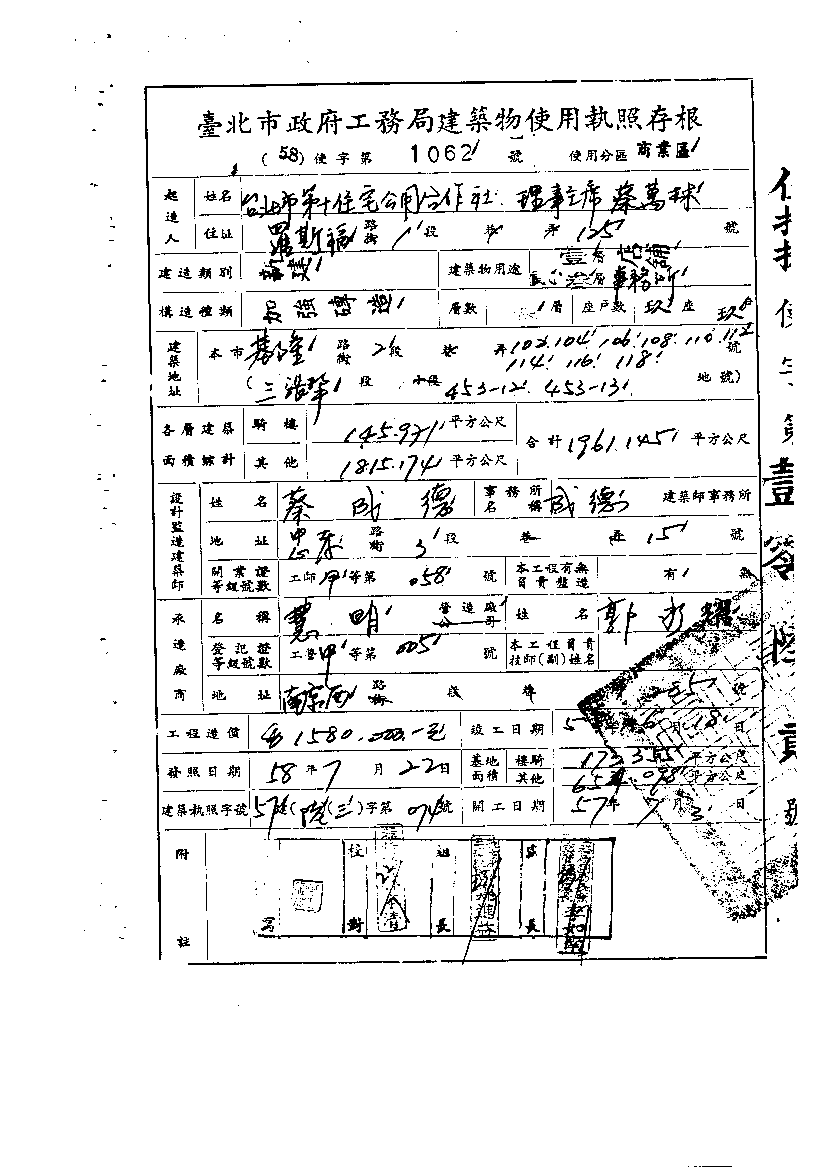 臺北市政府工務局建築物使用執照存根
(58)使字第 1062 號 使用分區 商業區
起造人 姓名 台北市第十住宅公用合作社 理事主席 蔡萬球
住址 羅斯福 路街 1 段 巷 弄 125 號
建造類別 新建 建築物用途 壹層店鋪
層事務所
構造種類 加強磚造 層數 層 座戶數 玖 座 玖戶
建築地址 本市 基隆 路街 2 段 巷 弄 102.104.106.108.110.112
114.116.118 號
(三張犂 段 小段 453-12. 453-13 地號)
各層建築面積總計 騎樓 145.971 平方公尺 合計 1961.145 平方公尺
其他 1815.174 平方公尺
設計監造建築師 姓名 蔡成德 事務所名稱 成德 建築師事務所
地址 忠孝 路街 3 段 巷 弄 15 號
開業證等級號數 工師 甲 等第 058 號 本工程有無負責監造 有 無
承造廠商 名稱 慧明 營造廠公司 姓名 郭 耀
登記證等級號數 工營 甲 等第 005 號 本工程負責技師(副)姓名
地址 南京西 路街 段 號
工程造價 1580.000.-元 竣工日期 5 年 6 月 18 日
發照日期 58 年 7 月 22 日 基地面積 樓騎 173.355 平方公尺
其他 654.098 平方公尺
建築執照字號 57建( )(三)字第 074 號 開工日期 57 年 7 月 3 日
附註 校對 組長
使 字第壹零陸貳號